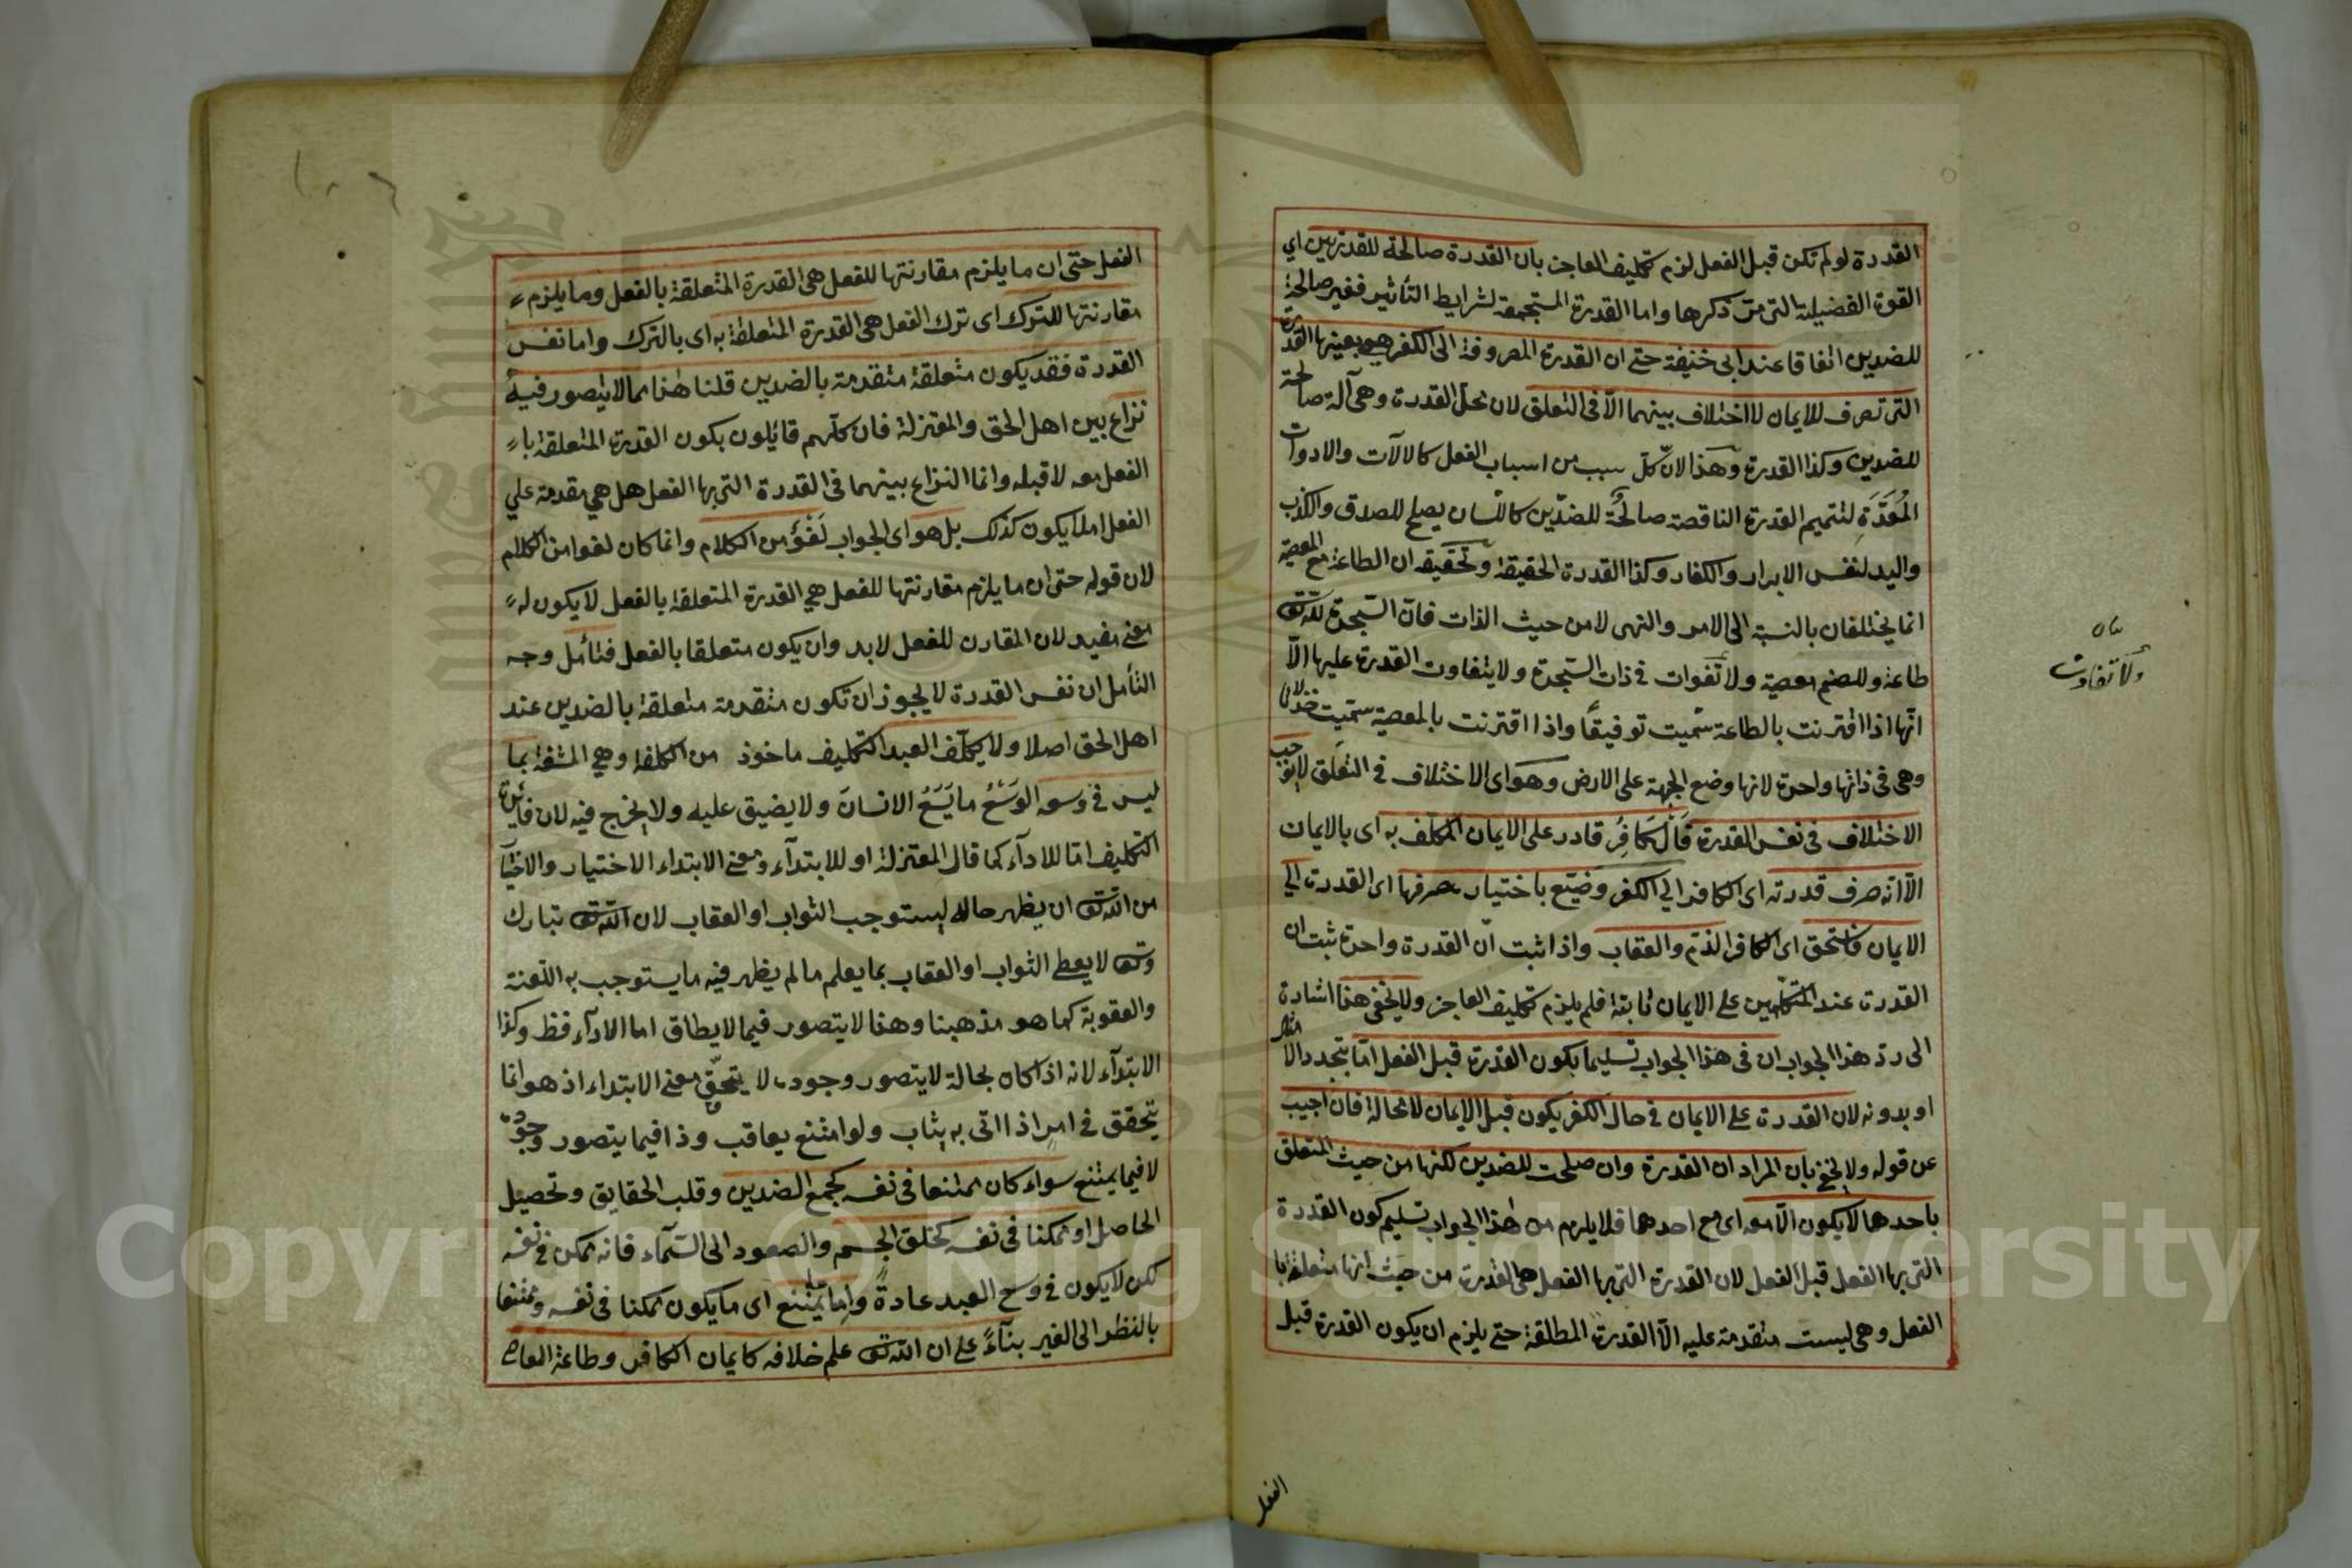 القدرة لو لم تكن قبل الفعل لزم تكليف العاجز بان القدرة صالحة للقدرتين اي
القوة الفضيلية التى مرّ ذكرها واما القدرة المستجمعة لشرايط التأثير فغير صالحة
للضدين اتفاقا عند ابى حنيفة حتى ان القدرة المصروفة الى الكفر هى بعينها القدرة
التى تصرف للايمان لا اختلاف بينهما الّا فى التعلق لان محلّ القدرة وهى آلة صالحة
للضدين وكذا القدرة وهذا لانّ كلّ سبب من اسباب الفعل كالالآت والادوات
المُعَدَّةِ لتتميم القدرة الناقصة صالحُة للضدّين كاللّسان يصلح للصدق والكذب
واليد لنفس الابرار والكفار وكذا القدرة الحقيقة وتحقيقه ان الطاعة مع المعصية
انما يختلفان بالنسبة الى الامر والنهى لا من حيث الذات فانّ السّجدة للّه تع
طاعة وللصنم معصية ولا تفوات فى ذات السّجدة ولا يتفاوت القدرة عليها الّا
انّها اذا اقترنت بالطاعة سمّيت توفيقًا واذا اقترنت بالمعصية سمّيت خذلان
وهى فى ذاتها واحدة لانها وضع الجبهة على الارض وهو اى الاختلاف فى التعلق لا يوجب
الاختلاف فى نفس القدرة قَالَ كافِر قادر على الايمان المكلّف به اى بالايمان
الّا انّه صرف قدرته اى الكافر الي الكفر وضيّع باختيار صرفها اى القدرة الي
الايمان فاستحق اى الكافر الذمّ والعقاب واذا ثبت انّ القدرة واحدة ثبت ان
القدرة عند المتكلّمين على الايمان ثابتة فلم يلزم تكليف العاجز ولا يخفى هنا اشارة
الى ردّ هذا الجواب ان فى هذا الجواب تسليما بكون القدرة قبل الفعل امّا بتجدد الامثال
او بدونه لان القدرة على الايمان فى حال الكفر يكون قبل الايمان لا محالة فان اجيب
عن قوله ولا يخفى بان المراد ان القدرة وان صلحت للضدين لكنها من حيث المتعلق
باحدهما لا يكون الّا معه اى مع احدهما فلا يلزم من هذا الجواب تسليم كون القدرة
التى بها الفعل قبل الفعل لان القدرة التى بها الفعل هى القدرة من حيث انها متعلقة با
الفعل وهى ليست متقدمة عليه الّا القدرة المطلقة حتى يلزم ان يكون القدرة قبل
ولا تفاوت
الفعل
الفعل حتى ان ما يلزم مقارنتها للفعل هى القدرة المتعلقة بالفعل وما يلزم
مقارنتها للترك اى ترك الفعل هى القدرة المتعلقة به اى بالترك واما نفس
القدرة فقد يكون متعلقة متقدمة بالضدين قلنا هذا مما لا يتصور فيه
نزاع بين اهل الحق والمعتزلة فان كلّهم قائلون بكون القدرة المتعلقة با
الفعل معه لا قبله وانما النزاع بينهما فى القدرة التى بها الفعل هل هى مقدمة علي
الفعل ام لا يكون كذلك بل هو اى الجواب لَغْوٌ من الكلام وانما كان لغوا من الكلام
لان قوله حتى ان ما يلزم مقارنتها للفعل هى القدرة المتعلقة بالفعل لا يكون له
معنى مفيد لان المقارن للفعل لابد وان يكون متعلقا بالفعل فتأمل وجه
التأمل ان نفس القدرة لا يجوز ان تكون متقدمة متعلقة بالضدين عند
اهل الحق اصلا ولا يكلّف العبد التكليف ماخوذ من الكلفة وهى المشقة بما
ليس فى وسعه الوَسْعُ ما يَسَعُ الانسانَ ولا يضيق عليه ولا يخرج فيه لان فائدة
التكليف امّا للادآء كما قال المعتزلة او للابتدآء ومعنى الابتداء الاختيار والاختيا
من اللّه تع ان يظهر حاله ليستوجب الثواب او العقاب لان اللّه تع تبارك
وتع لا يعطى الثواب او العقاب بما يعلم ما لم يظهر فيه ما يستوجب به اللعنة
والعقوبة كما هو مذهبنا وهذا لا يتصور فيما لا يطاق اما الادآء فظ وكذا
الابتدآء لانه اذا كان بحالة لا يتصور وجوده لا يتحقّق معنى الابتداء اذ هو انما
يتحقق فى امرٍ اذا اتى به يثاب ولو امتنع يعاقب وذا فيما يتصور وجوده
لا فيما يمتنع سواء كان ممتنعا فى نفسه كجمع الضدين وقلب الحقايق وتحصيل
الحاصل او ممكنا فى نفسه كخلق الجسم والصعود الى السّمآء فانه ممكن فى نفسه
لكن لا يكون فى وسع العبد عادةً واما ما يمتنع اى ما يكون ممكنا فى نفسه وممتنعا
بالنظر الى الغير بنآءً على ان اللّه تع علم خلافه كايمان الكافر وطاعة العاصى